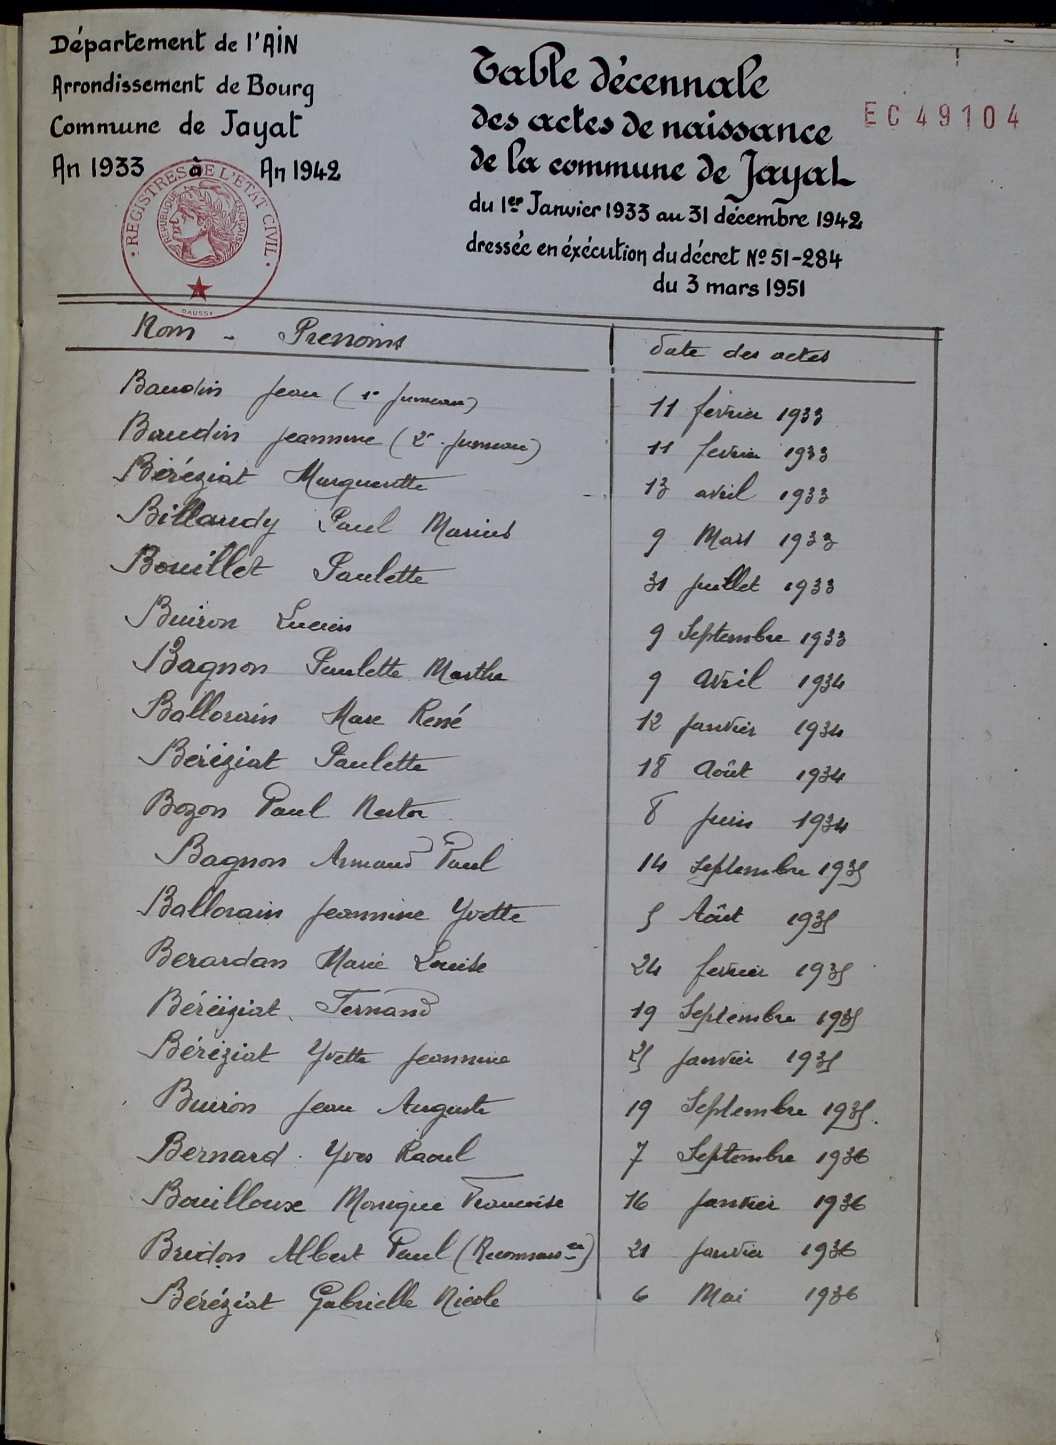 Département de l'AIN
Arrondissement de Bourg
Commune de Jayat
An 1933 à An 1942
Table décennale
des actes de naissance
de la commune de Jayat
du 1er Janvier 1933 au 31 décembre 1942
dressée en éxécution du décret No 51-284
du 3 mars 1951
EC 49104
REGISTRES DE L'ETAT CIVIL
REPUBLIQUE FRANÇAISE
Nom - Prenoms date des actes
Baudin Jean (1er Jumeau) 11 février 1933
Baudin Jeannine (2e Jumeau) 11 fevrier 1933
Béréziat Marguerite 13 avril 1933
Billaudy Paul Marius 9 Mars 1933
Bouillet Paulette 31 Juillet 1933
Buiron Lucien 9 Septembre 1933
Bagnon Paulette Marthe 9 Avril 1934
Ballorain Marc René 12 Janvier 1934
Béréziat Paulette 18 Août 1934
Bozon Paul Nestor 8 Juin 1934
Bagnon Armand Paul 14 Septembre 1935
Ballorain Jeannine Yvette 5 Août 1935
Berardan Marie Louise 24 fevrier 1935
Béréziat Fernand 19 Septembre 1935
Béréziat Yvette Jeannine 25 Janvier 1935
Buiron Jean Auguste 19 Septembre 1935.
Bernard Yves Raoul 7 Septembre 1936
Bouilloux Monique Francoise 16 Janvier 1936
Bridon Albert Paul (Reconnais-ce) 21 Janvier 1936
Béréziat Gabrielle Nicole 6 Mai 1936